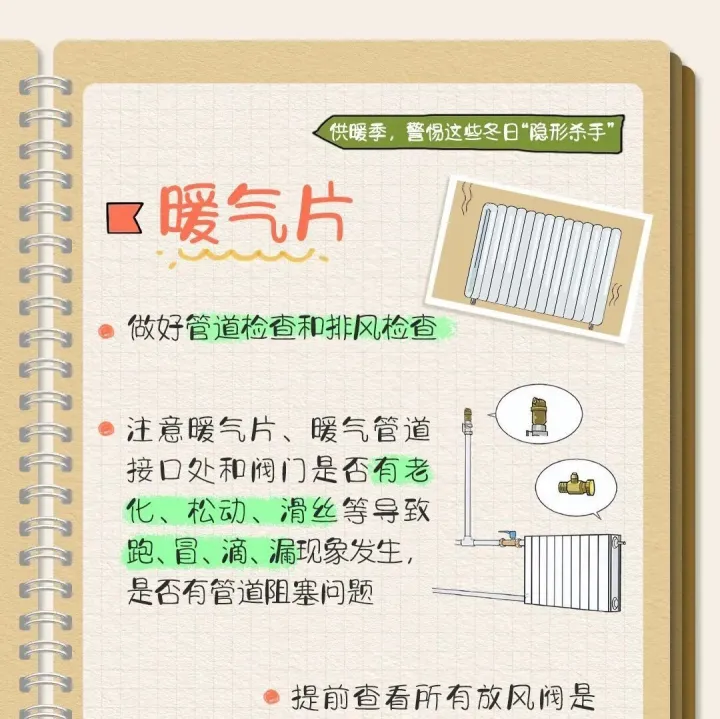 供暖季，警惕这些冬日“隐形杀手”
暖气片
做好管道检查和排风检查
注意暖气片、暖气管道
接口处和阀门是否有老
化、松动、滑丝等导致
跑、冒、滴、漏现象发生，
是否有管道阻塞问题
提前查看所有放风阀是